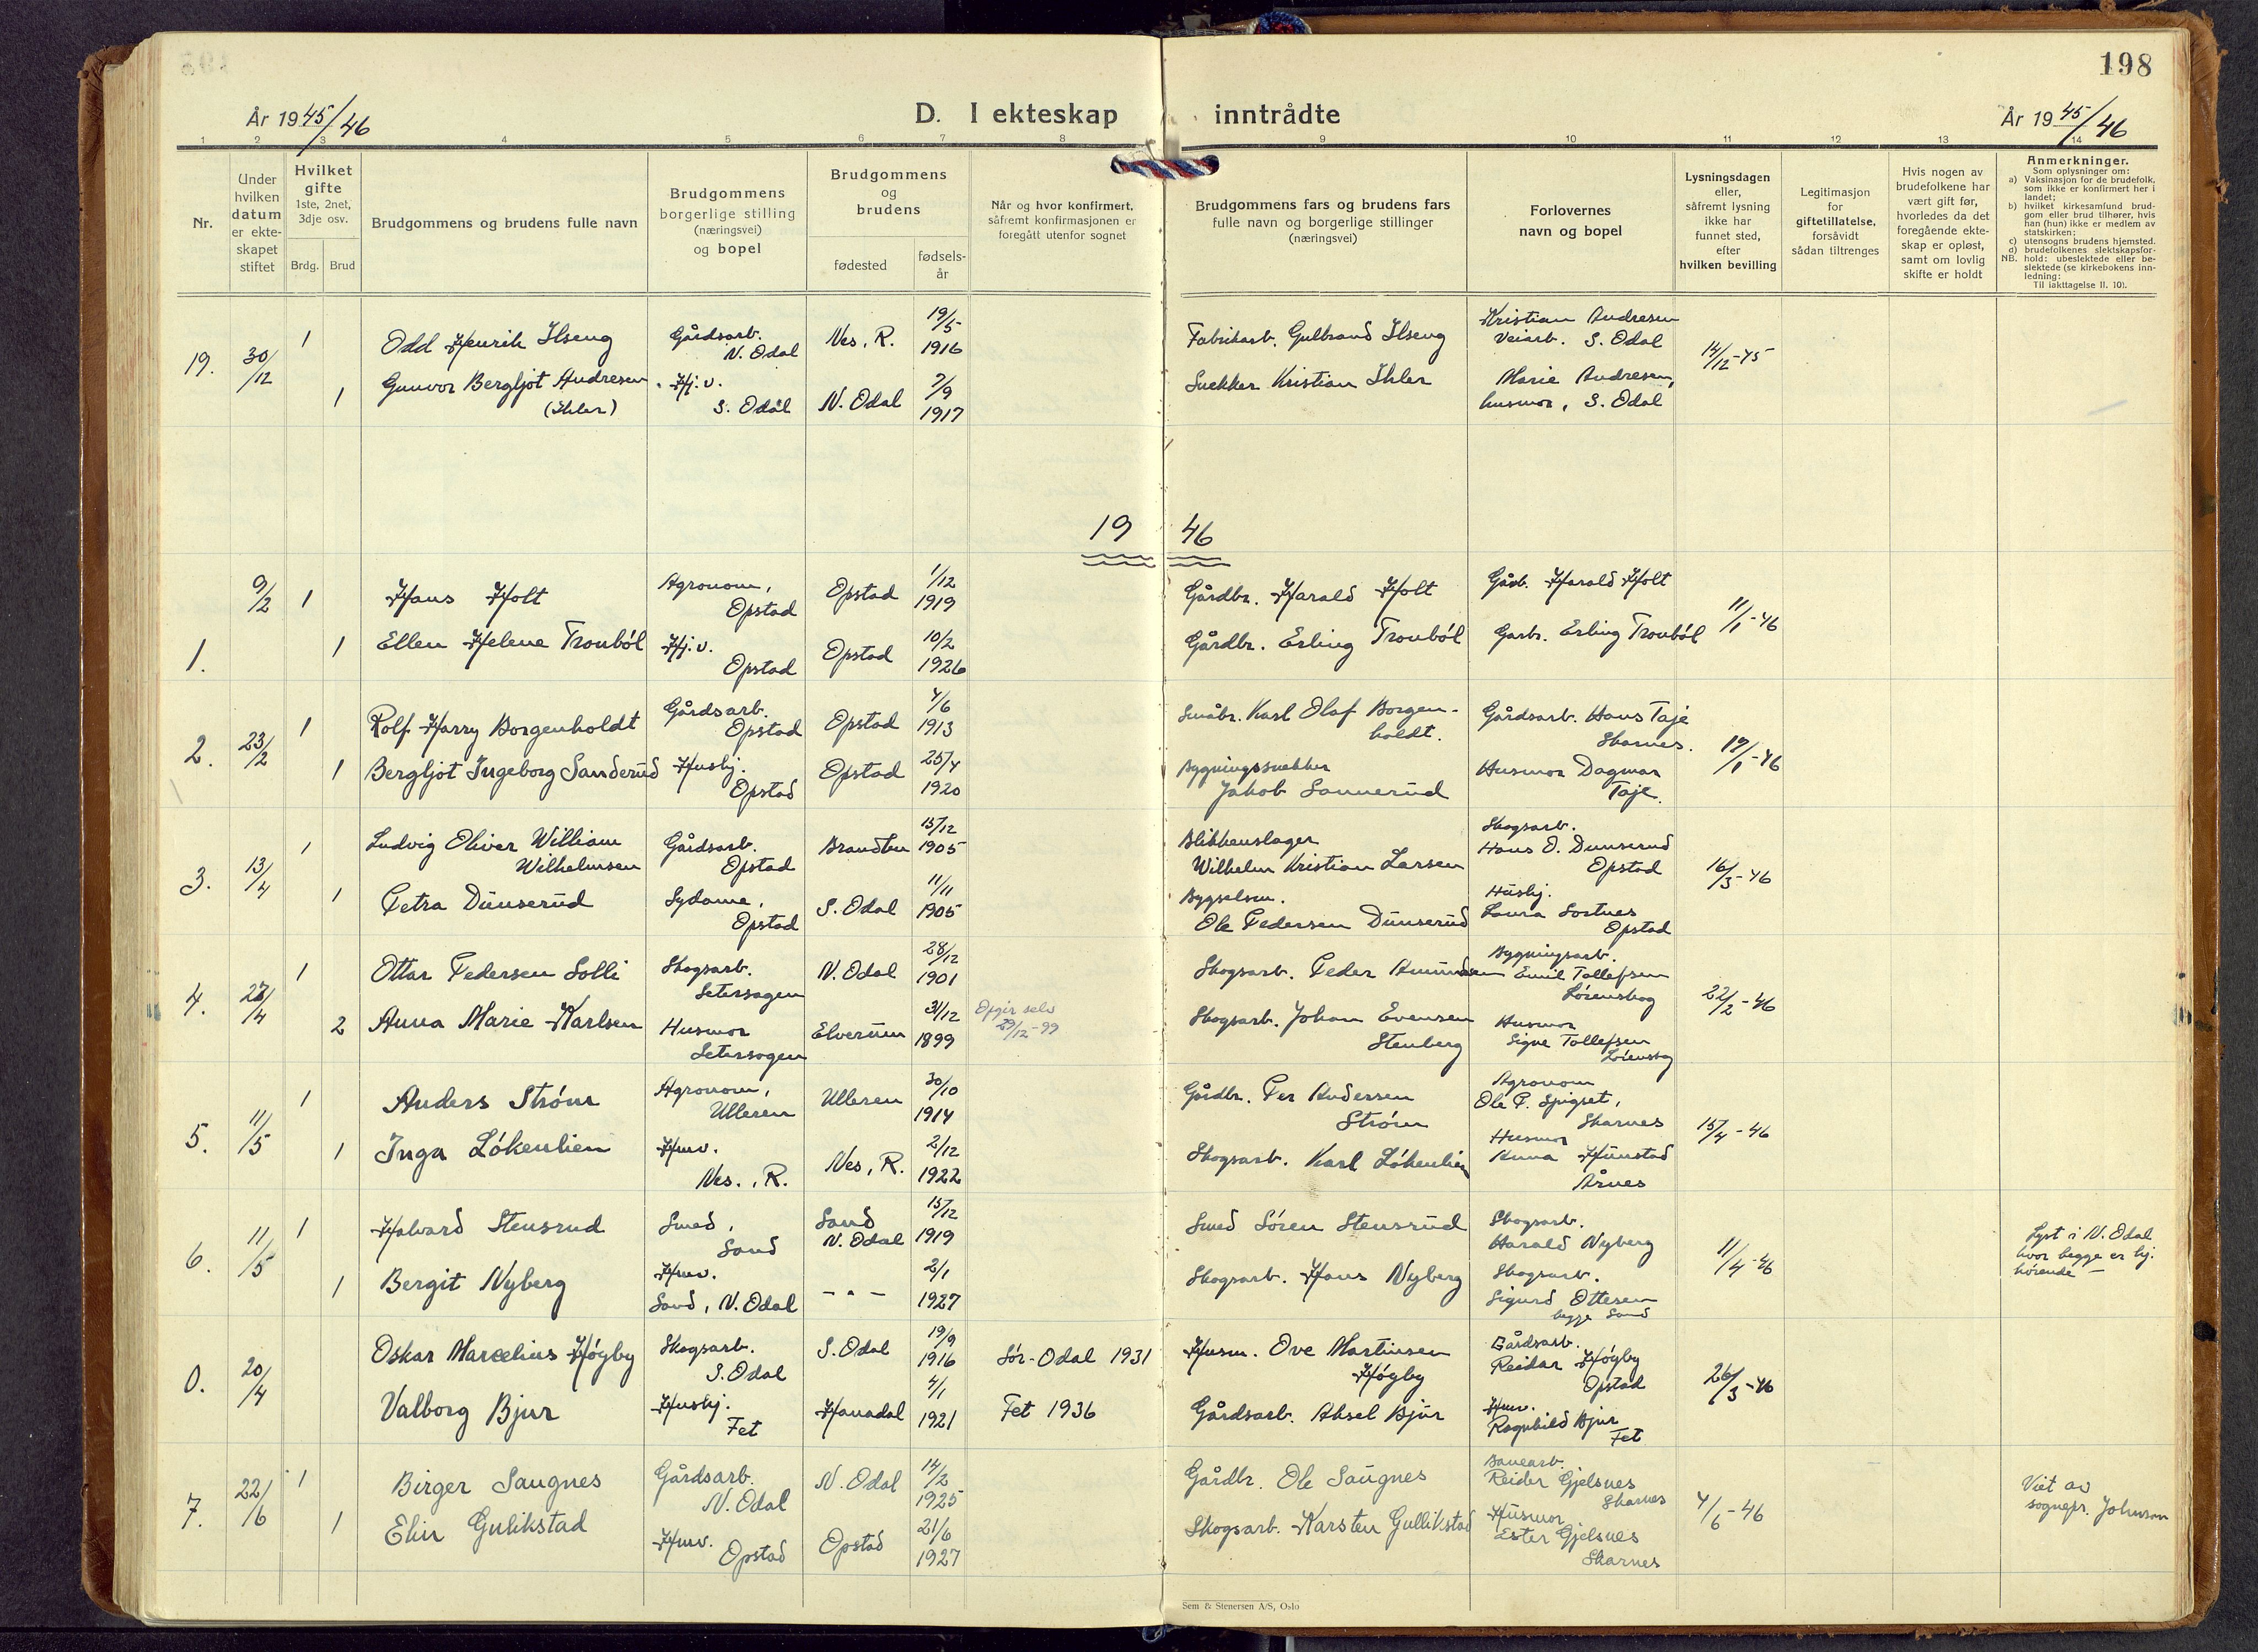 198
År 1945/46
D. I ekteskap inntrådte
År 1945/46
1 2 3 4 5 6 7 8 9 10 11 12 13 14
Nr.
Under hvilken datum er ekteskapet stiftet
Hvilket gifte 1ste, 2net, 3dje osv.
Brdg. Brud
Brudgommens og brudens fulle navn
Brudgommens borgerlige stilling (næringsvei) og bopel
Brudgommens og brudens
fødested
fødsels-år
Når og hvor konfirmert, såfremt konfirmasjonen er foregått utenfor sognet
Brudgommens fars og brudens fars fulle navn og borgerlige stillinger (næringsvei)
Forlovernes navn og bopel
Lysningsdagen eller, såfremt lysning ikke har funnet sted, efter hvilken bevilling
Legitimasjon for giftetillatelse, forsåvidt sådan tiltrenges
Hvis nogen av brudefolkene har vært gift før, hvorledes da det foregående ekteskap er opløst, samt om lovlig skifte er holdt
Anmerkninger.
Som oplysninger om:
a) Vaksinasjon for de brudefolk, som ikke er konfirmert her i landet;
b) hvilket kirkesamfund brudgom eller brud tilhører, hvis han (hun) ikke er medlem av statskirken;
c) utensogns brudens hjemsted.
d) brudefolkenes slektskapsforhold: ubeslektede eller beslektede (se kirkebokens innledning:
NB.
Til iakttagelse II. 10).
19. 30/12 1 Odd Henrik Ilseng Gårdsarb. N. Odal Nes, R. 19/5 1916 Fabrikarb. Gulbrand Ilseng Kristian Andresen Veiarb. S. Odal 14/12-45
1 Gunvor Bergljot Andresen (Ihler) Hj.v. S. Odal N. Odal 7/9 1917 Snekker Kristian Ihler Marie Andresen, husmor, S. Odal
19 46
1. 9/2 1 Hans Holt Agronom, Opstad Opstad 1/12 1919 Gårdbr. Harald Holt Gårb. Harald Holt 11/1-46
1 Ellen Helene Tronbøl Hj.v. Opstad Opstad 10/2 1926 Gårdbr. Erling Tronbøl Garbr. Erling Tronbøl
2. 23/2 1 Rolf Harry Borgenholdt Gårdsarb. Opstad Opstad 4/6 1913 Småbr. Karl Olaf Borgenholdt. Gårdsarb. Hans Taje Skarnes. 19/1-46
1 Bergljot Ingeborg Sanderud Hushj. Opstad Opstad 25/4 1920 Bygningssnekker Jakob Sannerud Husmor Dagmar Taje.
3. 13/4 1 Ludvig Oliver William Wilhelmsen Gårdsarb. Opstad Brandbu 15/12 1905 Blikkenslager Wilhelm Kristian Larsen Skogsarb. Hans O. Dunserud Opstad 16/3-46
1 Petra Dunserud Sydame, Opstad S. Odal 11/11 1905 Bygselsm. Ole Pedersen Dunserud Hushj. Laura Sortnes Opstad
4. 27/4 1 Ottar Pedersen Solli Skogsarb. Setersagen N. Odal 28/12 1901 Skogsarb. Peder Amundsen Bygningsarb. Emil Tollefsen Lørenskog 22/2-46
2 Anna Marie Karlsen Husmor Setersagen Elverum 31/12 1899 Opgir selv 29/12-99 Skogsarb. Johan Evensen Stenberg Husmor Signe Tollefsen Lørenskog
5. 11/5 1 Anders Strøm Agronom, Ulleren Ulleren 30/10 1914 Gårdbr. Per Andersen Strøm Agronom Ole P. Spigset, Skarnes 15/4-46
1 Inga Løkenlien Husv. Nes., R. Nes, R. 2/12 1922 Skogsarb. Karl Løkenlien Husmor Anna Hunstad Årnes
6. 11/5 1 Halvard Stensrud Smed, Sand Sand N. Odal 15/12 1919 Smed Søren Stensrud Skogsarb. Harald Nyberg 11/4-46 Lyst i N. Odal hvor begge er hj. hørende –
1 Bergit Nyberg Husv. Sand, N. Odal – " – 2/1 1927 Skogsarb. Hans Nyberg Skogsarb. Sigurd Ottesen begge Sand
0. 20/4 Oskar Marcelius Høgby Skogsarb. S. Odal S. Odal 19/9 1916 Sør-Odal 1931 Husm. Ove Martinsen Høgby Gårdsarb. Reidar Høgby Opstad 26/3-46
Valborg Bjur Hushj. Fet 4/1 1921 Fet 1936 Gårdsarb. Aksel Bjur Husv. Ragnhild Bjur Fet
7. 22/6 1 Birger Saugnes Gårdsarb. N. Odal N. Odal 14/2 1925 Gårdbr. Ole Saugnes Banearb. Reidar Gjelsnes Skarnes 4/6-46 Viet av sognepr. Johnson
1 Elin Gulikstad Husv. Opstad Opstad 21/6 1927 Skogsarb. Karsten Gullikstad Husmor Ester Gjelsnes Skarnes
Sem & Stenersen A/S, Oslo